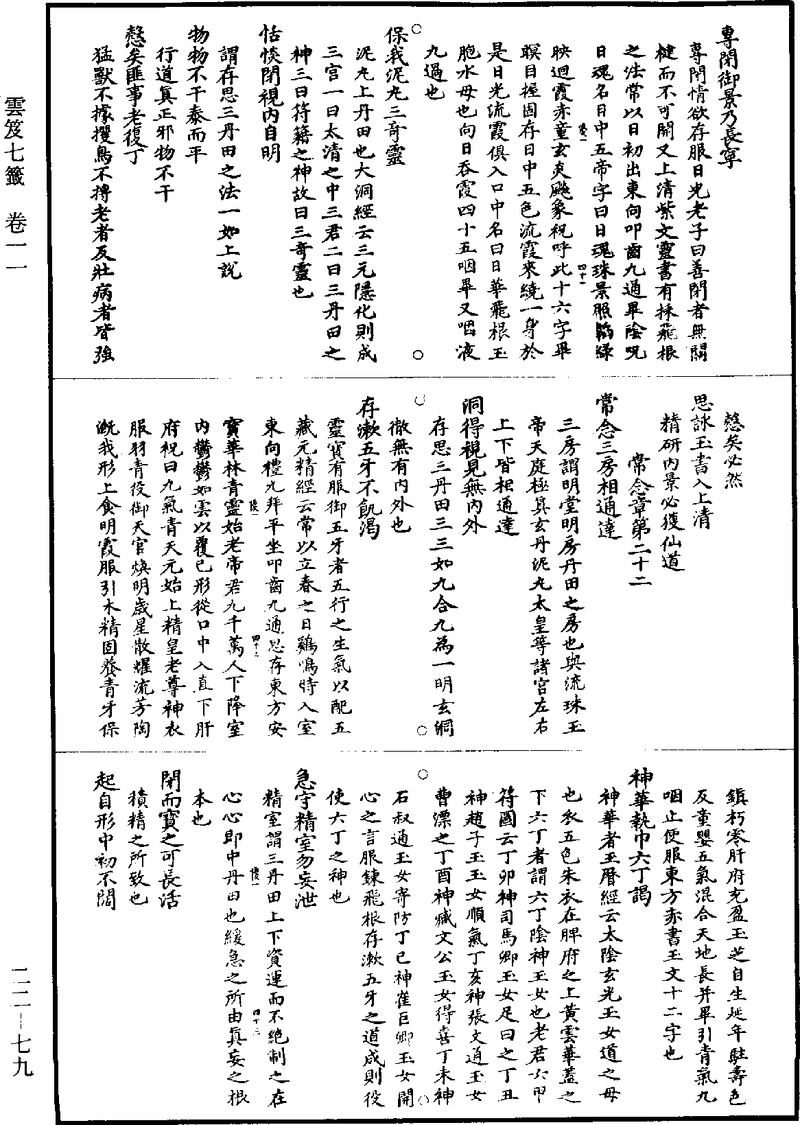 專閉御景乃長寧
專閉情欲存服日光老子曰善閉者無關
楗而不可開又上清紫文靈書有採飛根
之法常以日初出東向叩齒九通畢陰呪
日魂名日中五帝字曰日魂珠景照韜綠
映迴霞赤童玄炎飈象祝呼此十六字畢
瞑目握固存日中五色流霞來繞一身於
是日光流霞俱入口中名曰日華飛根玉
胞水母也向日吞霞四十五咽畢又咽液
九過也
保我泥丸三奇靈
泥丸上丹田也大洞經云三元隱化則成
三宮一曰太清之中三君二曰三丹田之
神三曰符籍之神故曰三奇靈也
恬惔閉視內自明
謂存思三丹田之法一如上說
物物不干泰而平
行道真正邪物不干
慤矣匪事老復丁
猛獸不據攫鳥不搏老者反壯病者皆強
慤矣必然
思詠玉書入上清
精研內景必獲仙道
常念章第二十二
常念三房相通達
三房謂明堂明房丹田之房也與流珠玉
帝天庭極真玄丹泥丸太皇等諸宮左右
上下皆相通達
洞得視見無內外
存思三丹田三三如九合九為一明玄洞
徹無有內外也
存漱五牙不飢渴
靈寶有服御五牙者五行之生氣以配五
藏元精經云常以立春之日鷄鳴時入室
東向禮九拜平坐叩齒九通思存東方安
寶華林青靈始老帝君九千萬人下降室
內鬱鬱如雲以覆己形從口中入直下肝
府祝曰九氣青天元始上精皇老尊神衣
服羽青役御天官煥明歲星散燿流芳陶
溉我形上食明霞服引木精固養青牙保
鎮朽零肝府充盈玉芝自生延年駐壽色
反童嬰五氣混合天地長并畢引青氣九
咽止便服東方赤書玉文十二字也
神華執巾六丁謁
神華者玉曆經云太陰玄光玉女道之母
也衣五色朱衣在脾府之上黃雲華蓋之
下六丁者謂六丁陰神玉女也老君六甲
符圖云丁卯神司馬卿玉女足曰之丁丑
神趙子玉玉女順氣丁亥神張文通玉女
曹漂之丁酉神臧文公玉女得喜丁未神
石叔通玉女寄防丁巳神崔巨卿玉女開
心之言服鍊飛根存漱五牙之道成則役
使六丁之神也
急守精室勿妄泄
精室謂三丹田上下資運而不絕制之在
心心即中丹田也緩急之所由真妄之根
本也
閉而寶之可長活
積精之所致也
起自形中初不闊
雲笈七籤　卷一一
二二—七九